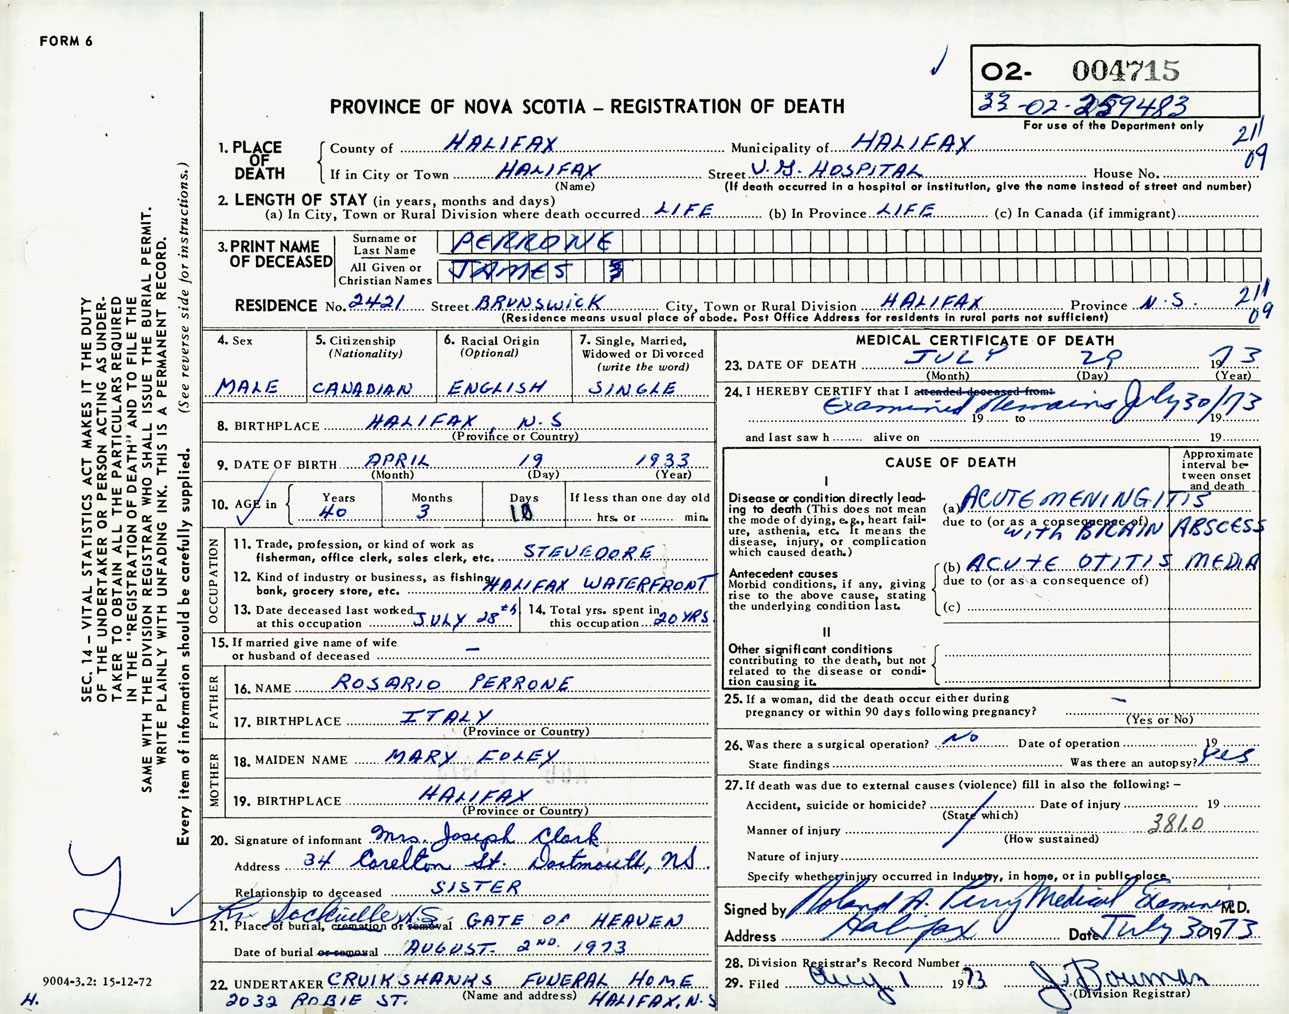 FORM 6
O2- 004715
33-02-259483
For use of the Department only
PROVINCE OF NOVA SCOTIA – REGISTRATION OF DEATH
211
09
1. PLACE OF DEATH
County of HALIFAX Municipality of HALIFAX
If in City or Town HALIFAX Street V.G. HOSPITAL House No.
(Name) (If death occurred in a hospital or institution, give the name instead of street and number)
2. LENGTH OF STAY (in years, months and days)
(a) In City, Town or Rural Division where death occurred LIFE (b) In Province LIFE (c) In Canada (if immigrant)
3. PRINT NAME OF DECEASED
Surname or Last Name PERRONE
All Given or Christian Names JAMES
RESIDENCE No. 2421 Street BRUNSWICK City, Town or Rural Division HALIFAX Province N.S.
211
09
(Residence means usual place of abode. Post Office Address for residents in rural parts not sufficient)
4. Sex
MALE
5. Citizenship
(Nationality)
CANADIAN
6. Racial Origin
(Optional)
ENGLISH
7. Single, Married,
Widowed or Divorced
(write the word)
SINGLE
8. BIRTHPLACE HALIFAX, N.S
(Province or Country)
9. DATE OF BIRTH APRIL 19 1933
(Month) (Day) (Year)
10. AGE in Years 40 Months 3 Days 10
If less than one day old
hrs. or min.
OCCUPATION
11. Trade, profession, or kind of work as
fisherman, office clerk, sales clerk, etc. STEVEDORE
12. Kind of industry or business, as fishing,
bank, grocery store, etc. HALIFAX WATERFRONT
13. Date deceased last worked
at this occupation JULY 28th
14. Total yrs. spent in
this occupation 20 YRS.
15. If married give name of wife
or husband of deceased –
FATHER
16. NAME ROSARIO PERRONE
17. BIRTHPLACE ITALY
(Province or Country)
MOTHER
18. MAIDEN NAME MARY FOLEY
19. BIRTHPLACE HALIFAX
(Province or Country)
20. Signature of informant Mrs. Joseph Clark
Address 34 Carelton St. Dartmouth, NS.
Relationship to deceased SISTER
Lr. Sackville N.S.
21. Place of burial, cremation or removal GATE OF HEAVEN
Date of burial or removal AUGUST 2ND. 1973
22. UNDERTAKER CRUIKSHANKS FUNERAL HOME
(Name and address)
2032 ROBIE ST. HALIFAX, N.S
MEDICAL CERTIFICATE OF DEATH
23. DATE OF DEATH JULY 29 1973
(Month) (Day) (Year)
24. I HEREBY CERTIFY that I attended deceased from:
Examined Remains July 30/73
19 to 19
and last saw h alive on 19
CAUSE OF DEATH
Approximate
interval be-
tween onset
and death
I
Disease or condition directly lead-
ing to death (This does not mean
the mode of dying, e.g., heart fail-
ure, asthenia, etc. It means the
disease, injury, or complication
which caused death.)
(a) ACUTE MENINGITIS
due to (or as a consequence of)
with BRAIN ABSCESS
Antecedent causes
Morbid conditions, if any, giving
rise to the above cause, stating
the underlying condition last.
(b) ACUTE OTITIS MEDIA
due to (or as a consequence of)
(c)
II
Other significant conditions
contributing to the death, but not
related to the disease or condi-
tion causing it.
25. If a woman, did the death occur either during
pregnancy or within 90 days following pregnancy? –
(Yes or No)
26. Was there a surgical operation? No Date of operation 19
State findings Was there an autopsy? Yes
27. If death was due to external causes (violence) fill in also the following: –
Accident, suicide or homicide? Date of injury 19
(State which)
Manner of injury 381.0
(How sustained)
Nature of injury
Specify whether injury occurred in Industry, in home, or in public place
Signed by Roland A. Perry Medical Examiner M.D.
Address Halifax Date July 30 1973
28. Division Registrar's Record Number
29. Filed Aug 1 1973 J. Bowman
(Division Registrar)
SEC. 14 – VITAL STATISTICS ACT MAKES IT THE DUTY
OF THE UNDERTAKER OR PERSON ACTING AS UNDER-
TAKER TO OBTAIN ALL THE PARTICULARS REQUIRED
IN THE "REGISTRATION OF DEATH" AND TO FILE THE
SAME WITH THE DIVISION REGISTRAR WHO SHALL ISSUE THE BURIAL PERMIT.
WRITE PLAINLY WITH UNFADING INK. THIS IS A PERMANENT RECORD.
Every item of information should be carefully supplied. (See reverse side for instructions.)
9004-3.2: 15-12-72
H.